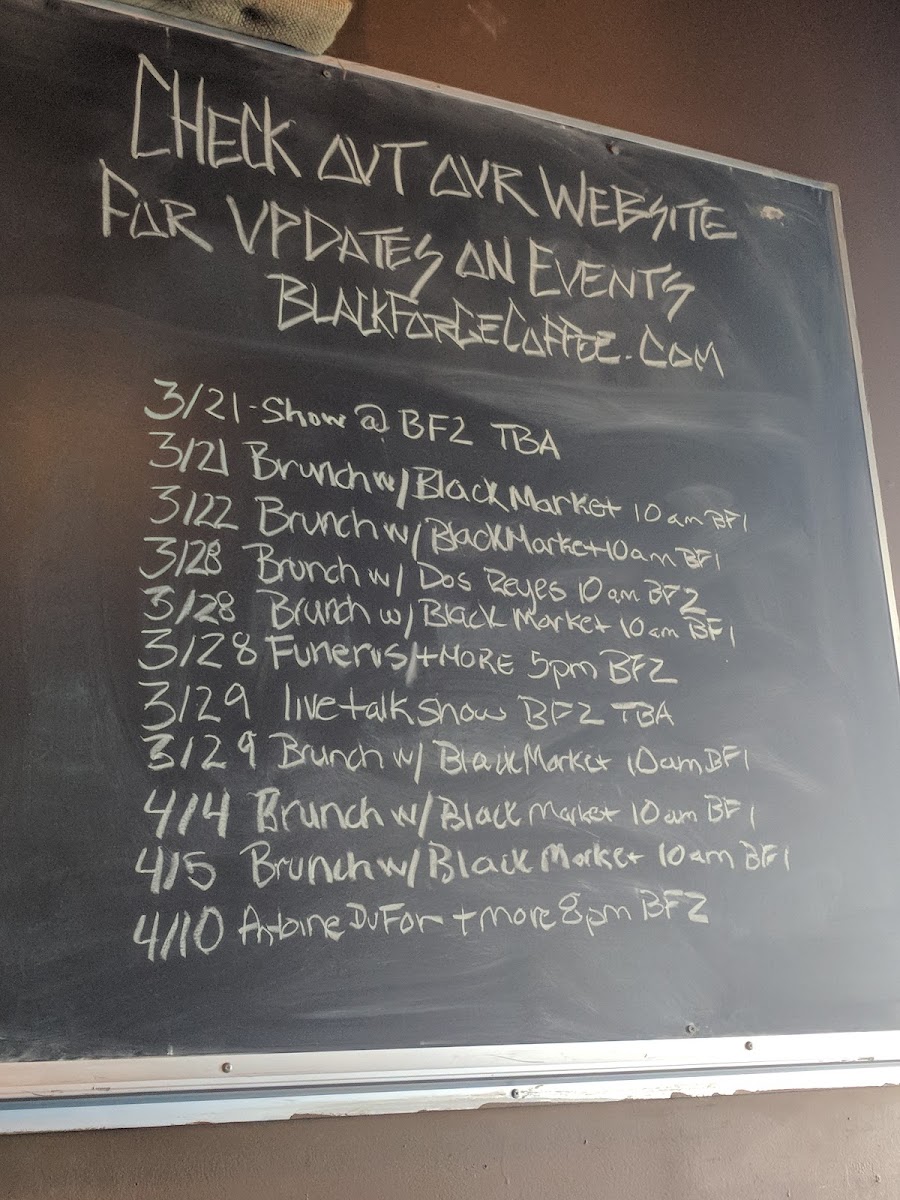 CHECK OUT OUR WEBSITE
FOR UPDATES ON EVENTS
BLACKFORGECOFFEE.COM
3/21 - Show @ BF2 TBA
3/21 Brunch w/ Black Market 10am BF1
3/22 Brunch w/ Black Market 10am BF1
3/28 Brunch w/ Dos Reyes 10am BF2
3/28 Brunch w/ Black Market 10am BF1
3/28 Funerus/+MORE 5pm BF2
3/29 live talk show BF2 TBA
3/29 Brunch w/ Black Market 10am BF1
4/4 Brunch w/ Black Market 10am BF1
4/5 Brunch w/ Black Market 10am BF1
4/10 Antoine DuFor + more 8pm BF2